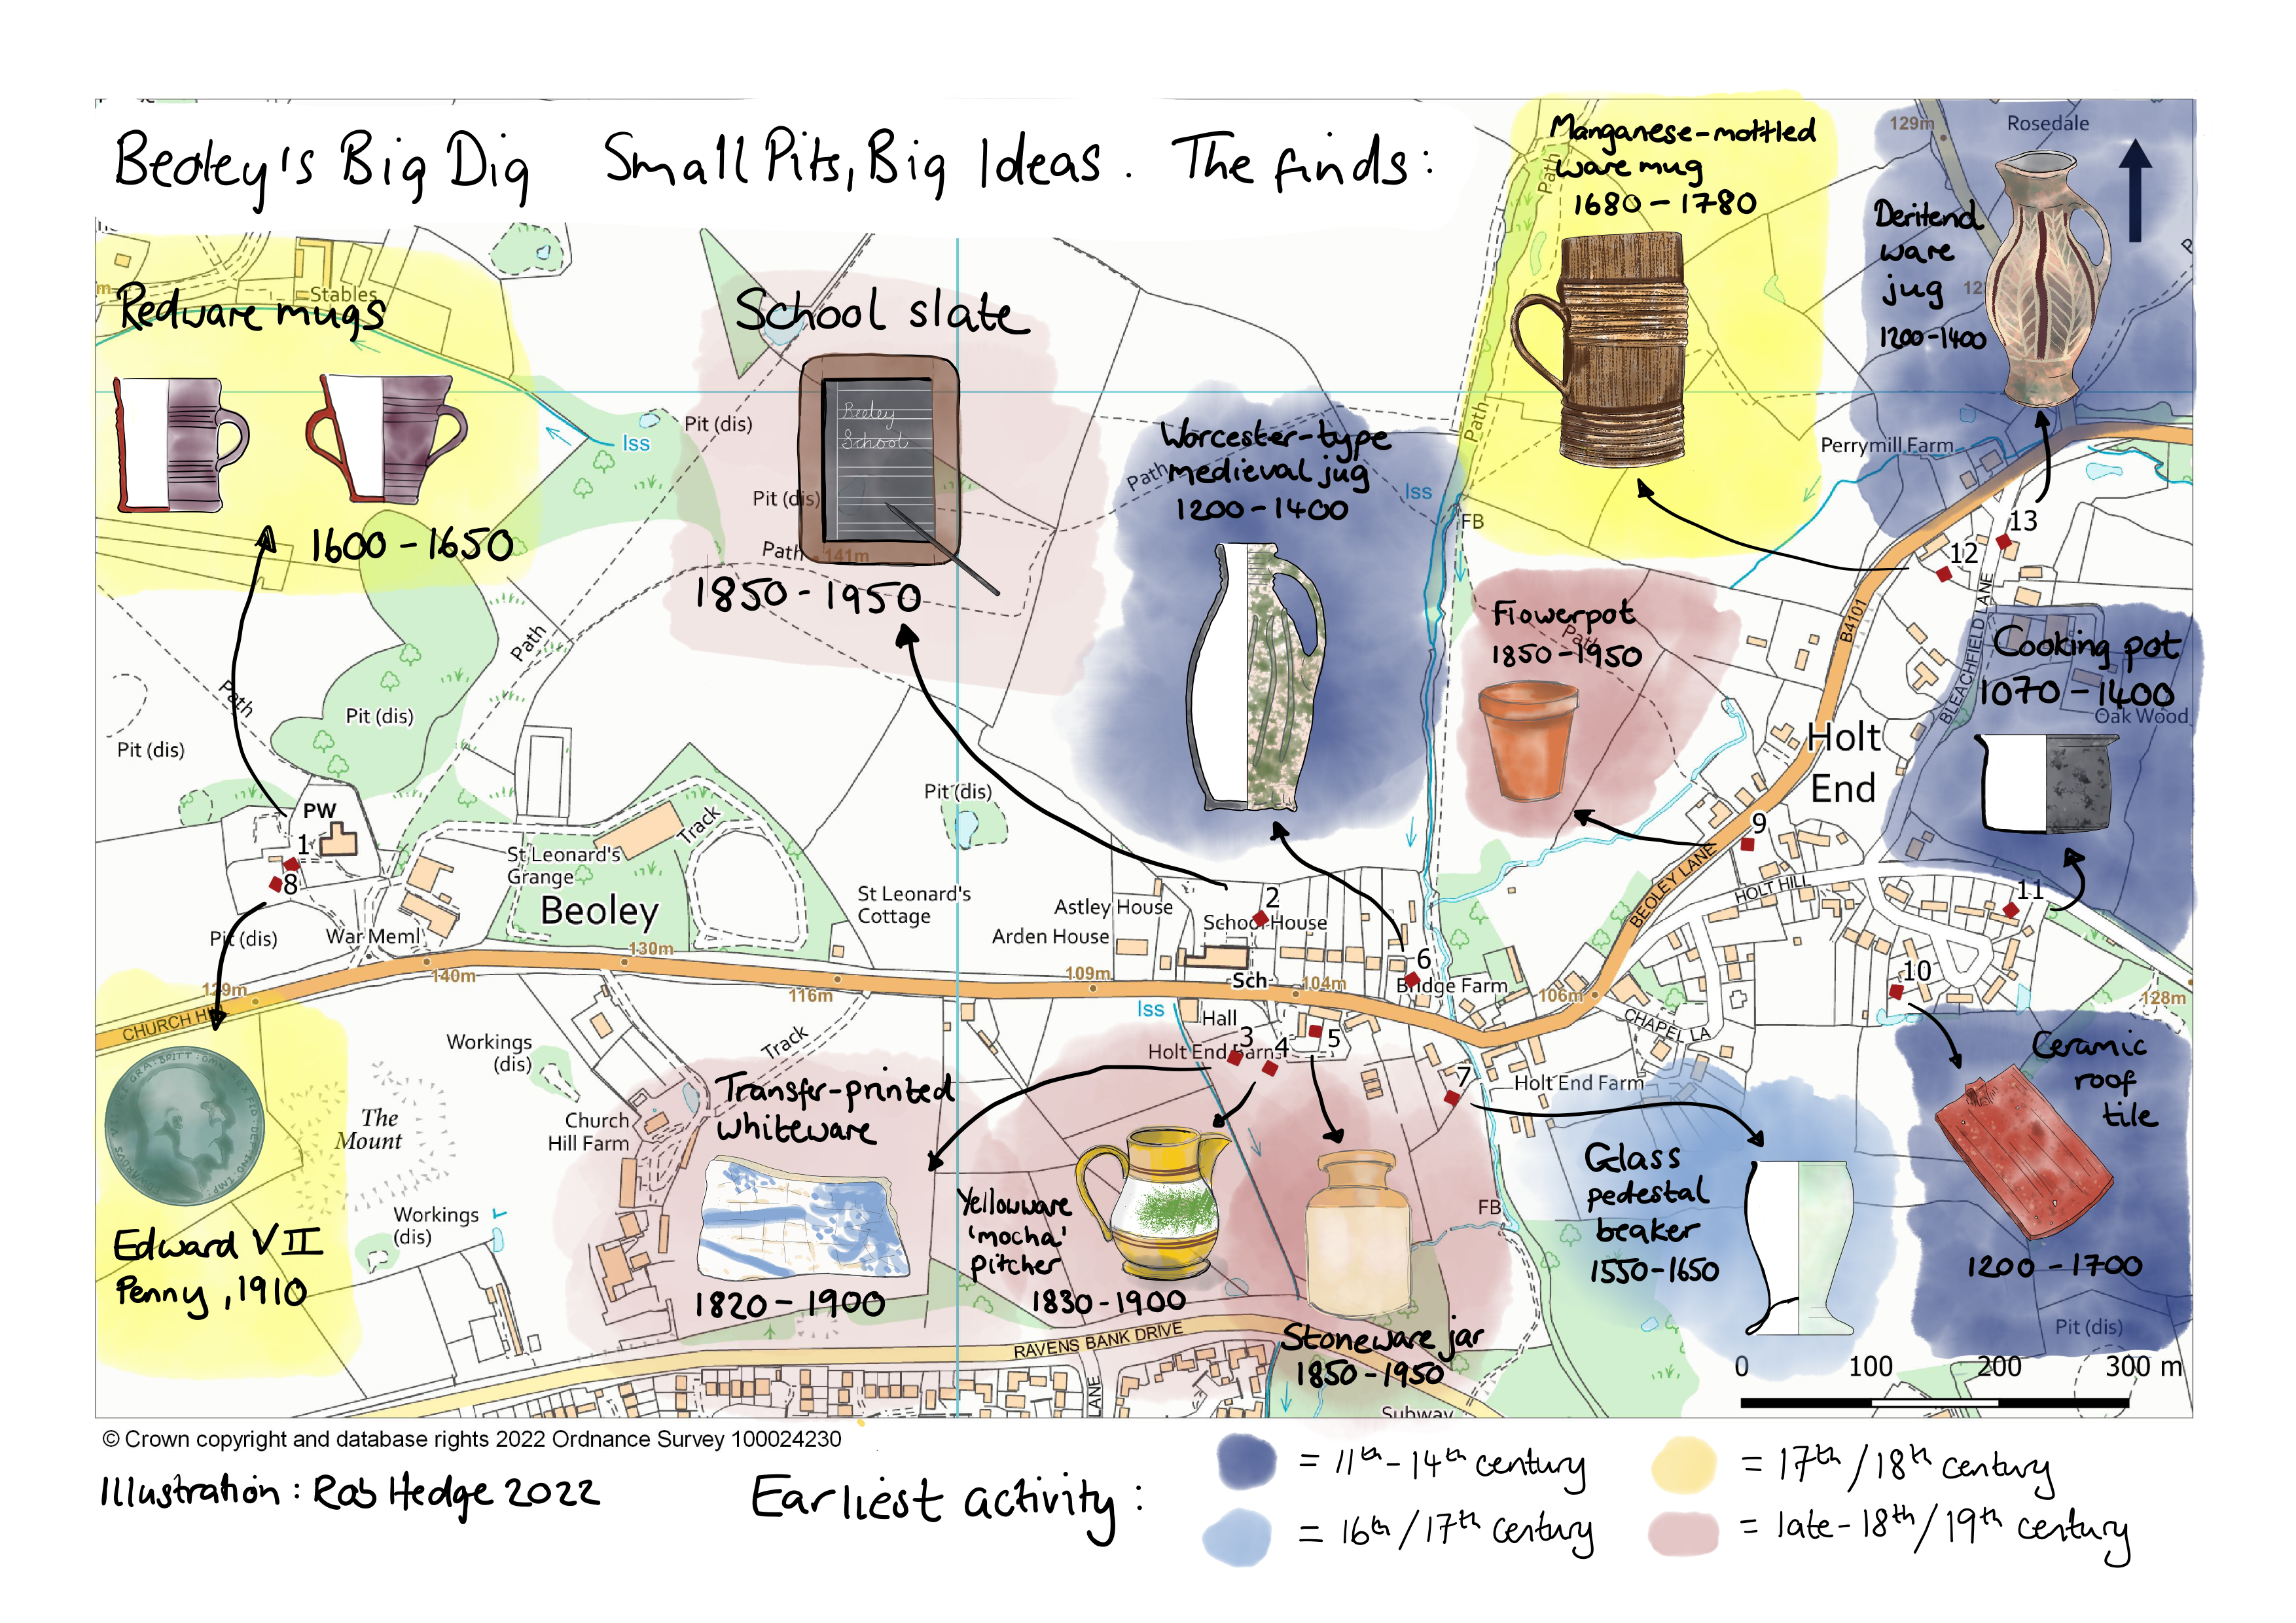 Beoley's Big Dig Small Pits, Big Ideas. The finds:
Manganese-mottled
ware mug
1680 - 1780
129m
Rosedale
Deritend
ware
jug
1200-1400
Stables
Redware mugs
1600 - 1650
School slate
Beoley
School
1850 - 1950
Pit (dis)
Pit (dis)
Path
141m
Iss
Worcester-type
medieval jug
1200 - 1400
Path
Iss
FB
Path
Path
Perrymill Farm
13
12
B4101
BLEACHFIELD LANE
Flowerpot
Path
1850-1950
Cooking pot
1070 - 1400
Oak Wood
Holt
End
Path
Path
Pit (dis)
Pit (dis)
Pit (dis)
PW
1
8
St Leonard's
Grange
Track
Beoley
St Leonard's
Cottage
Astley House
Arden House
2
School House
Sch
6
Bridge Farm
9
BEOLEY LANE
HOLT HILL
11
10
Pit (dis)
War Meml
129m
140m
130m
116m
109m
104m
106m
128m
CHURCH HI
CHAPEL LA
Iss
Hall
3
4
5
Holt End Barns
7
Holt End Farm
Workings
(dis)
Track
The
Mount
Church
Hill Farm
Workings
(dis)
Edward VII
Penny, 1910
Transfer-printed
whiteware
1820 - 1900
Yellowware
'mocha'
pitcher
1830-1900
Stoneware jar
1850-1950
FB
Glass
pedestal
beaker
1550-1650
Ceramic
roof
tile
1200 - 1700
Pit (dis)
RAVENS BANK DRIVE
LANE
Subway
0 100 200 300 m
© Crown copyright and database rights 2022 Ordnance Survey 100024230
Illustration: Rob Hedge 2022
Earliest activity:
= 11th - 14th century
= 16th / 17th century
= 17th / 18th century
= late-18th / 19th century